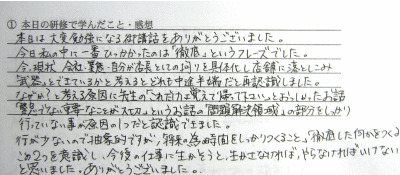 ① 本日の研修で学んだこと・感想
本日は大変勉強になる御講話をありがとうございました。
今日私の中に一番ひっかかったのは「徹底」というフレーズでした。
今、現状、会社・業務・自分が店長としての を具体化し店舗に落としこみ
武器」とできているかと考えるとどれも中途半端だと再認識しました。
なぜか?と考える原因に先生の「これだけは覚えて帰って下さい」とおっしゃったお話
緊急でない重要なことがスキル」というお話の「問題解決領域」の部分をしっかり
行っていない事が原因の1つだと認識できました。
行が少ないので抽象的ですが、将来の為の時間をしっかりつくること、「徹底した何かをつくる
この2つを意識し、今後の仕事に生かそうと、生かさなければ、やらなければいけない
と思いました。ありがとうございました。